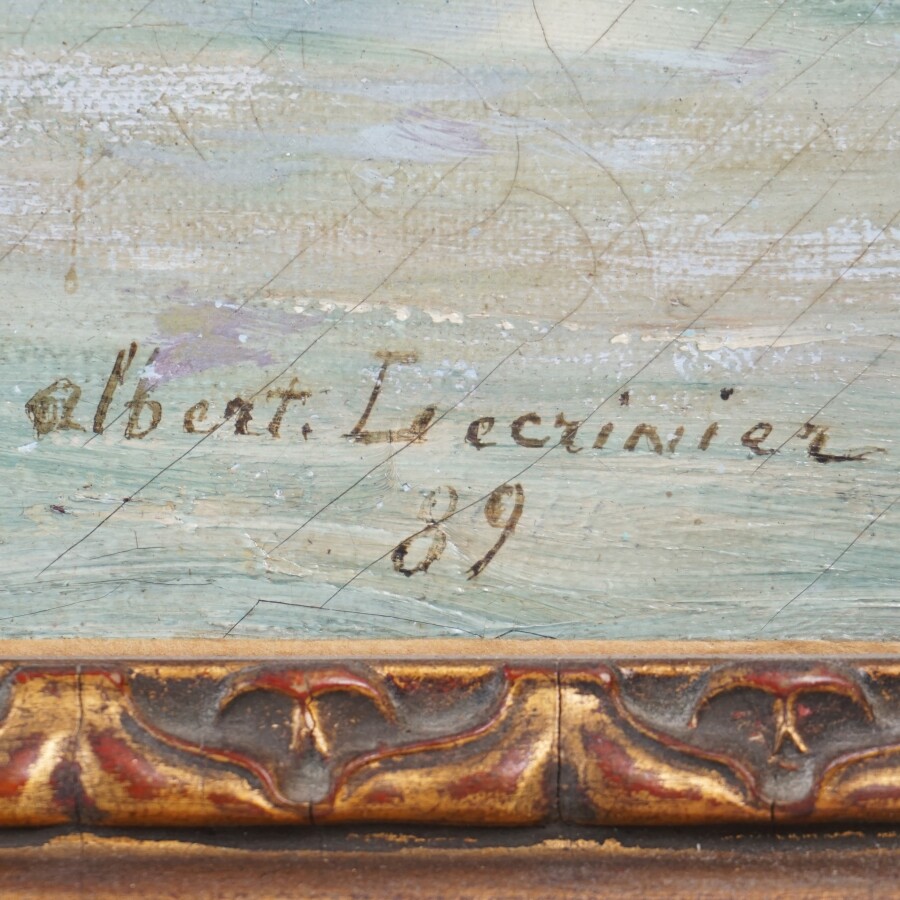 Albert. Lecrinier
89